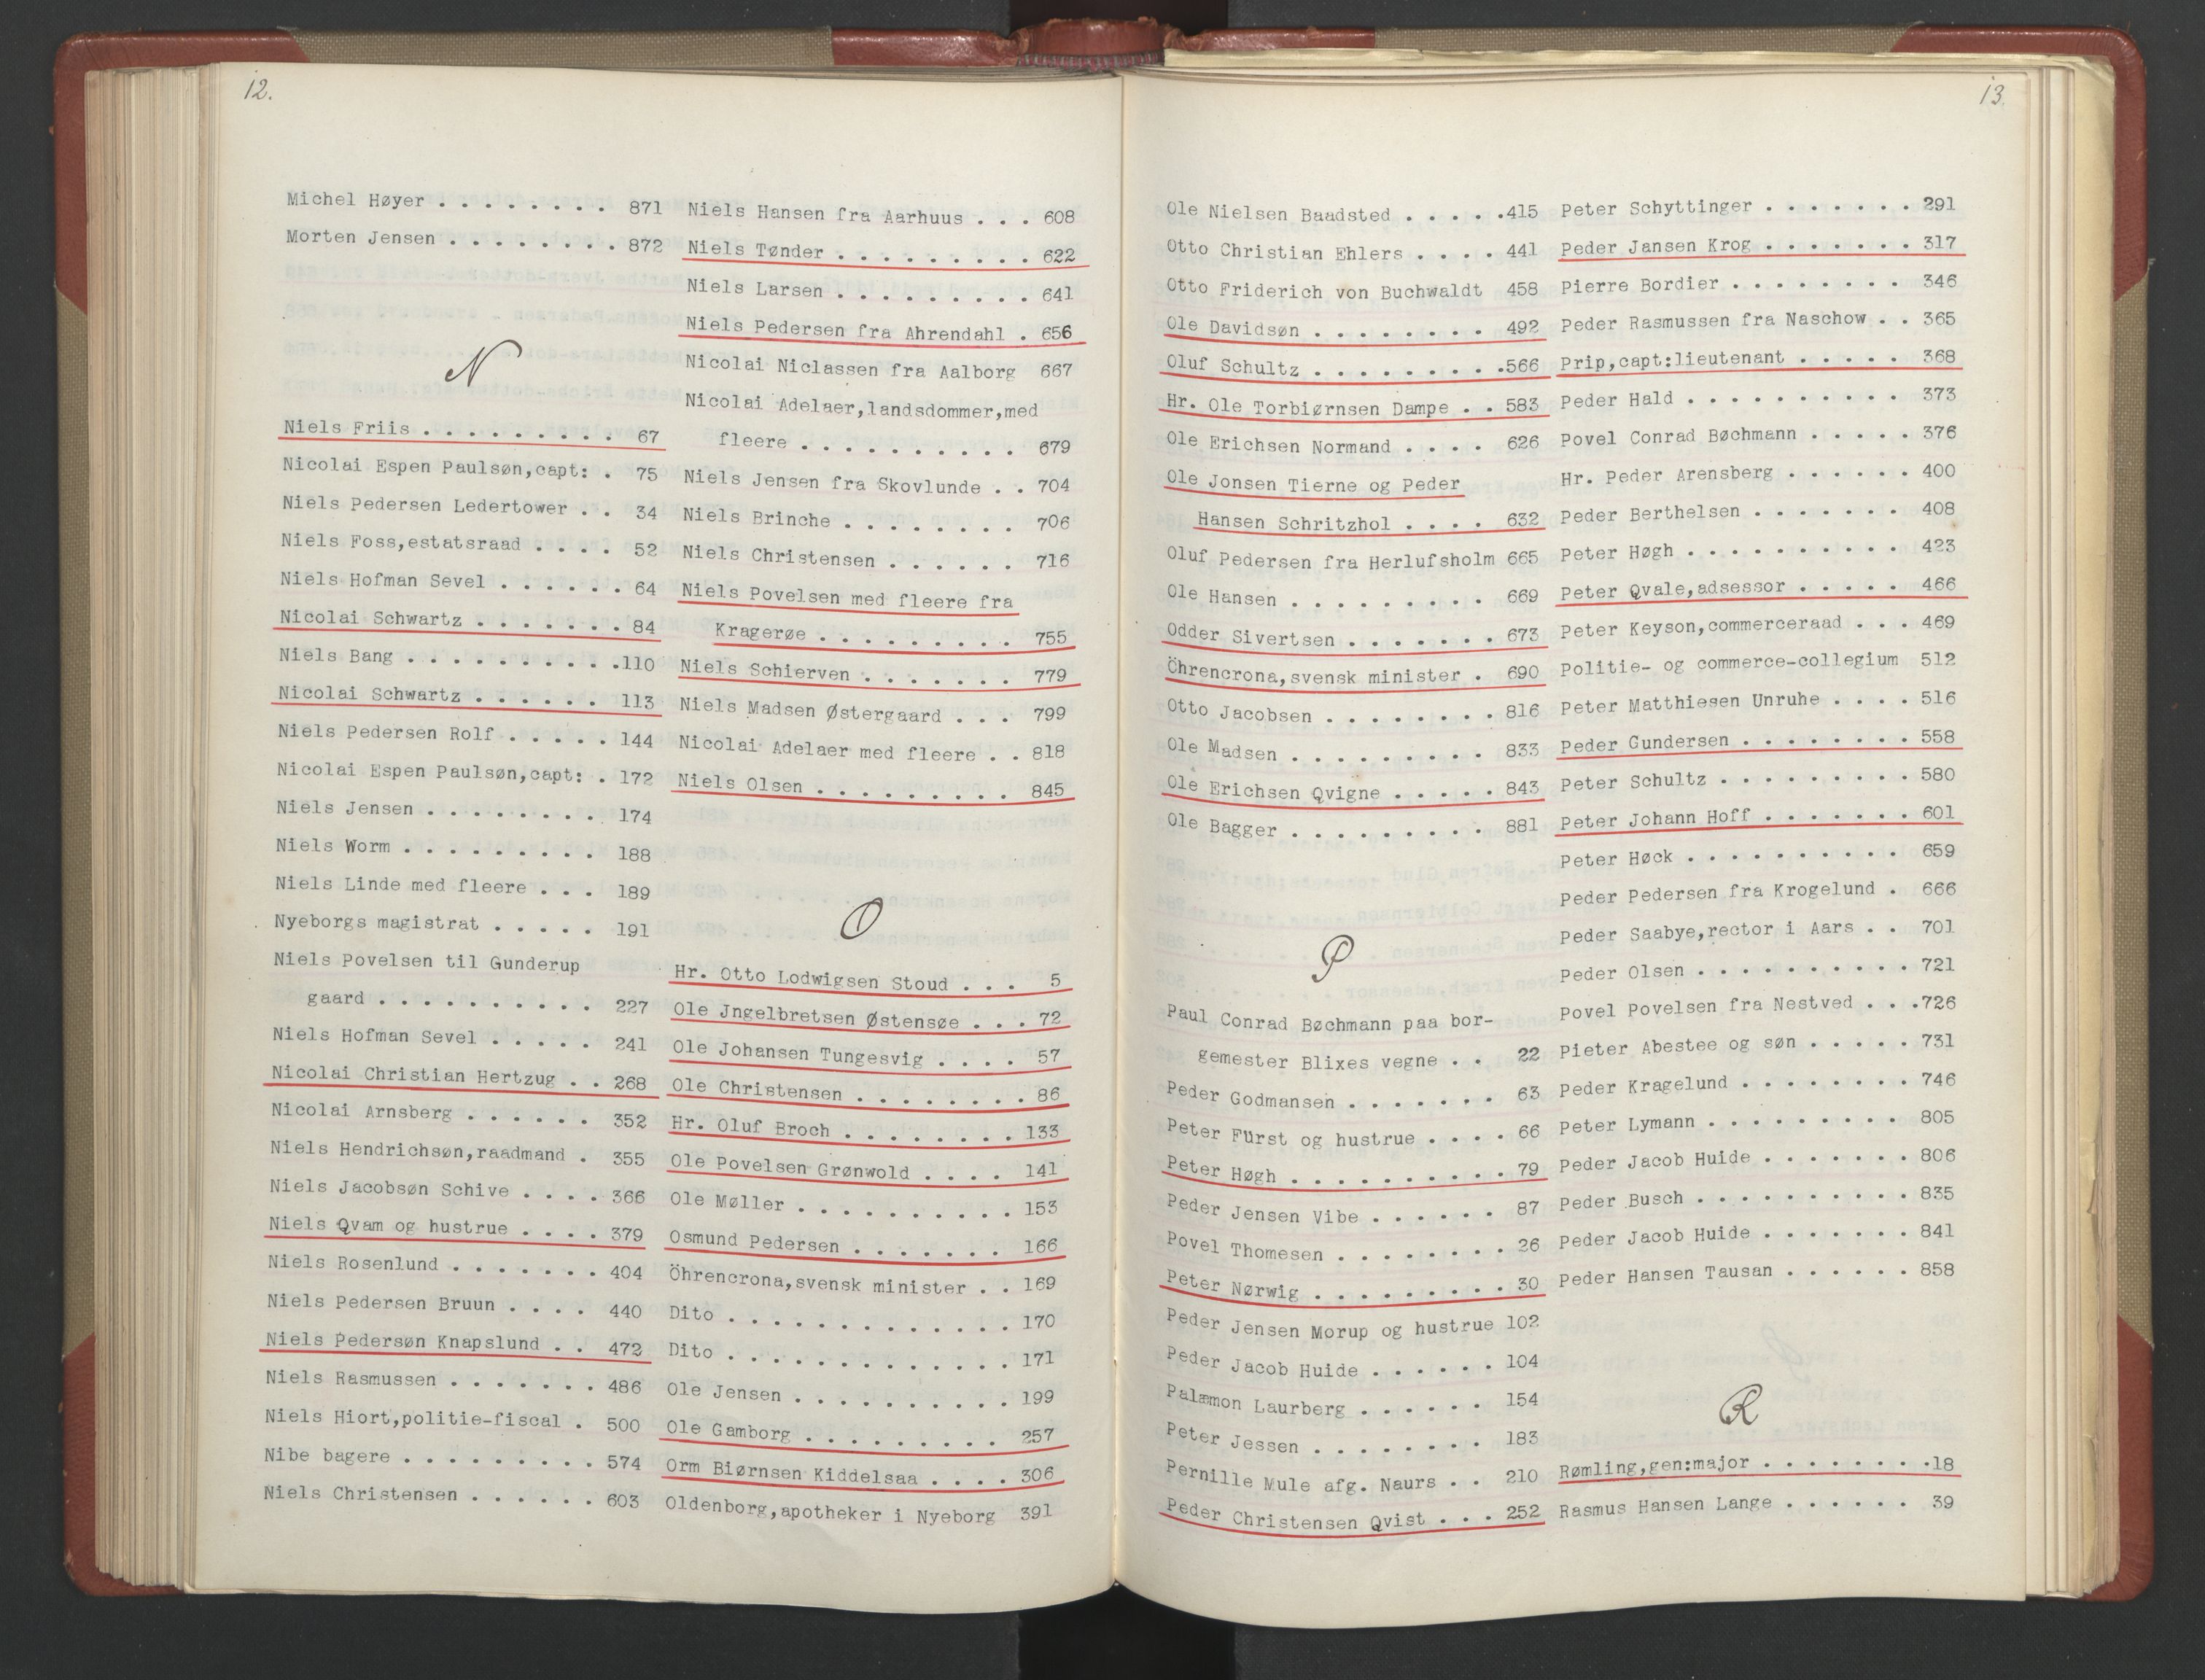 12.
Michel Høyer . . . . . . . . 871
Morten Jensen . . . . . . . . 872
N
Niels Friis . . . . . . . . . 67
Nicolai Espen Paulsøn,capt: . 75
Niels Pedersen Ledertower . . 34
Niels Foss,estatsraad . . . . 52
Niels Hofman Sevel . . . . . . 64
Nicolai Schwartz . . . . . . . 84
Niels Bang . . . . . . . . . .110
Nicolai Schwartz . . . . . . 113
Niels Pedersen Rolf . . . . . 144
Nicolai Espen Paulsøn,capt: . 172
Niels Jensen . . . . . . . . 174
Niels Worm . . . . . . . . . 188
Niels Linde med fleere . . . 189
Nyeborgs magistrat . . . . . 191
Niels Povelsen til Gunderup
gaard . . . . . . . . . . 227
Niels Hofman Sevel . . . . . 241
Nicolai Christian Hertzug . . 268
Nicolai Arnsberg . . . . . . 352
Niels Hendrichsøn,raadmand . 355
Niels Jacobsøn Schive . . . . 366
Niels Qvam og hustrue . . . . 379
Niels Rosenlund . . . . . . . 404
Niels Pedersen Bruun . . . . 440
Niels Pedersøn Knapslund . . 472
Niels Rasmussen . . . . . . . 486
Niels Hiort,politie-fiscal . 500
Nibe bagere . . . . . . . . . 574
Niels Christensen . . . . . . 603
Niels Hansen fra Aarhuus . . . 608
Niels Tønder . . . . . . . . . 622
Niels Larsen . . . . . . . . . 641
Niels Pedersen fra Ahrendahl . 656
Nicolai Niclassen fra Aalborg 667
Nicolai Adelaer,landsdommer,med
fleere . . . . . . . . . . 679
Niels Jensen fra Skovlunde . . 704
Niels Brinche . . . . . . . . 706
Niels Christensen . . . . . . 716
Niels Povelsen med fleere fra
Kragerøe . . . . . . . . . 755
Niels Schierven . . . . . . . 779
Niels Madsen Østergaard . . . 799
Nicolai Adelaer med fleere . . 818
Niels Olsen . . . . . . . . . 845
O
Hr. Otto Lodwigsen Stoud . . . 5
Ole Jngelbretsen Østensøe . . . 72
Ole Johansen Tungesvig . . . . 57
Ole Christensen . . . . . . . . 86
Hr. Oluf Broch . . . . . . . . 133
Ole Povelsen Grønwold . . . . 141
Ole Møller . . . . . . . . . . 153
Osmund Pedersen . . . . . . . 166
Öhrencrona,svensk minister . . 169
Dito . . . . . . . . . . . . . 170
Dito . . . . . . . . . . . . . 171
Ole Jensen . . . . . . . . . . 199
Ole Gamborg . . . . . . . . . 257
Orm Biørnsen Kiddelsaa . . . . 306
Oldenborg,apotheker i Nyeborg 391
13.
Ole Nielsen Baadsted . . . . .415
Otto Christian Ehlers . . . . 441
Otto Friderich von Buchwaldt 458
Ole Davidsøn . . . . . . . . 492
Oluf Schultz . . . . . . . . .566
Hr. Ole Torbiørnsen Dampe . . 583
Ole Erichsen Normand . . . . 626
Ole Jonsen Tierne og Peder
Hansen Schritzhol . . . . 632
Oluf Pedersen fra Herlufsholm 665
Ole Hansen . . . . . . . . . 669
Odder Sivertsen . . . . . . . 673
Öhrencrona,svensk minister . 690
Otto Jacobsen . . . . . . . . 816
Ole Madsen . . . . . . . . . 833
Ole Erichsen Qvigne . . . . . 843
Ole Bagger . . . . . . . . . 881
P
Paul Conrad Bøchmann paa bor-
gemester Blixes vegne . . 22
Peder Godmansen . . . . . . . 63
Peter Fürst og hustrue . . . . 66
Peter Høgh . . . . . . . . . . 79
Peder Jensen Vibe . . . . . . 87
Povel Thomesen . . . . . . . . 26
Peter Nørwig . . . . . . . . . 30
Peder Jensen Morup og hustrue 102
Peder Jacob Huide . . . . . . 104
Palæmon Laurberg . . . . . . 154
Peter Jessen . . . . . . . . 183
Pernille Mule afg. Naurs . . 210
Peder Christensen Qvist . . . 252
Peter Schyttinger . . . . . . . 291
Peder Jansen Krog . . . . . . . 317
Pierre Bordier . . . . . . . . 346
Peder Rasmussen fra Naschow . . 365
Prip,capt:lieutenant . . . . . 368
Peder Hald . . . . . . . . . . 373
Povel Conrad Bøchmann . . . . . 376
Hr. Peder Arensberg . . . . . . 400
Peder Berthelsen . . . . . . . 408
Peter Høgh . . . . . . . . . . 423
Peter Qvale,adsessor . . . . . 466
Peter Keyson,commerceraad . . . 469
Politie- og commerce-collegium 512
Peter Matthiesen Unruhe . . . . 516
Peder Gundersen . . . . . . . . 558
Peter Schultz . . . . . . . . . 580
Peter Johann Hoff . . . . . . . 601
Peter Høck . . . . . . . . . . 659
Peder Pedersen fra Krogelund . 666
Peder Saabye,rector i Aars . . 701
Peder Olsen . . . . . . . . . . 721
Povel Povelsen fra Nestved . . .726
Pieter Abestee og søn . . . . . 731
Peder Kragelund . . . . . . . . 746
Peter Lymann . . . . . . . . . 805
Peder Jacob Huide . . . . . . . 806
Peder Busch . . . . . . . . . . 835
Peder Jacob Huide . . . . . . . 841
Peder Hansen Tausan . . . . . . 858
R
Rømling,gen:major . . . . . . . .18
Rasmus Hansen Lange . . . . . . 39